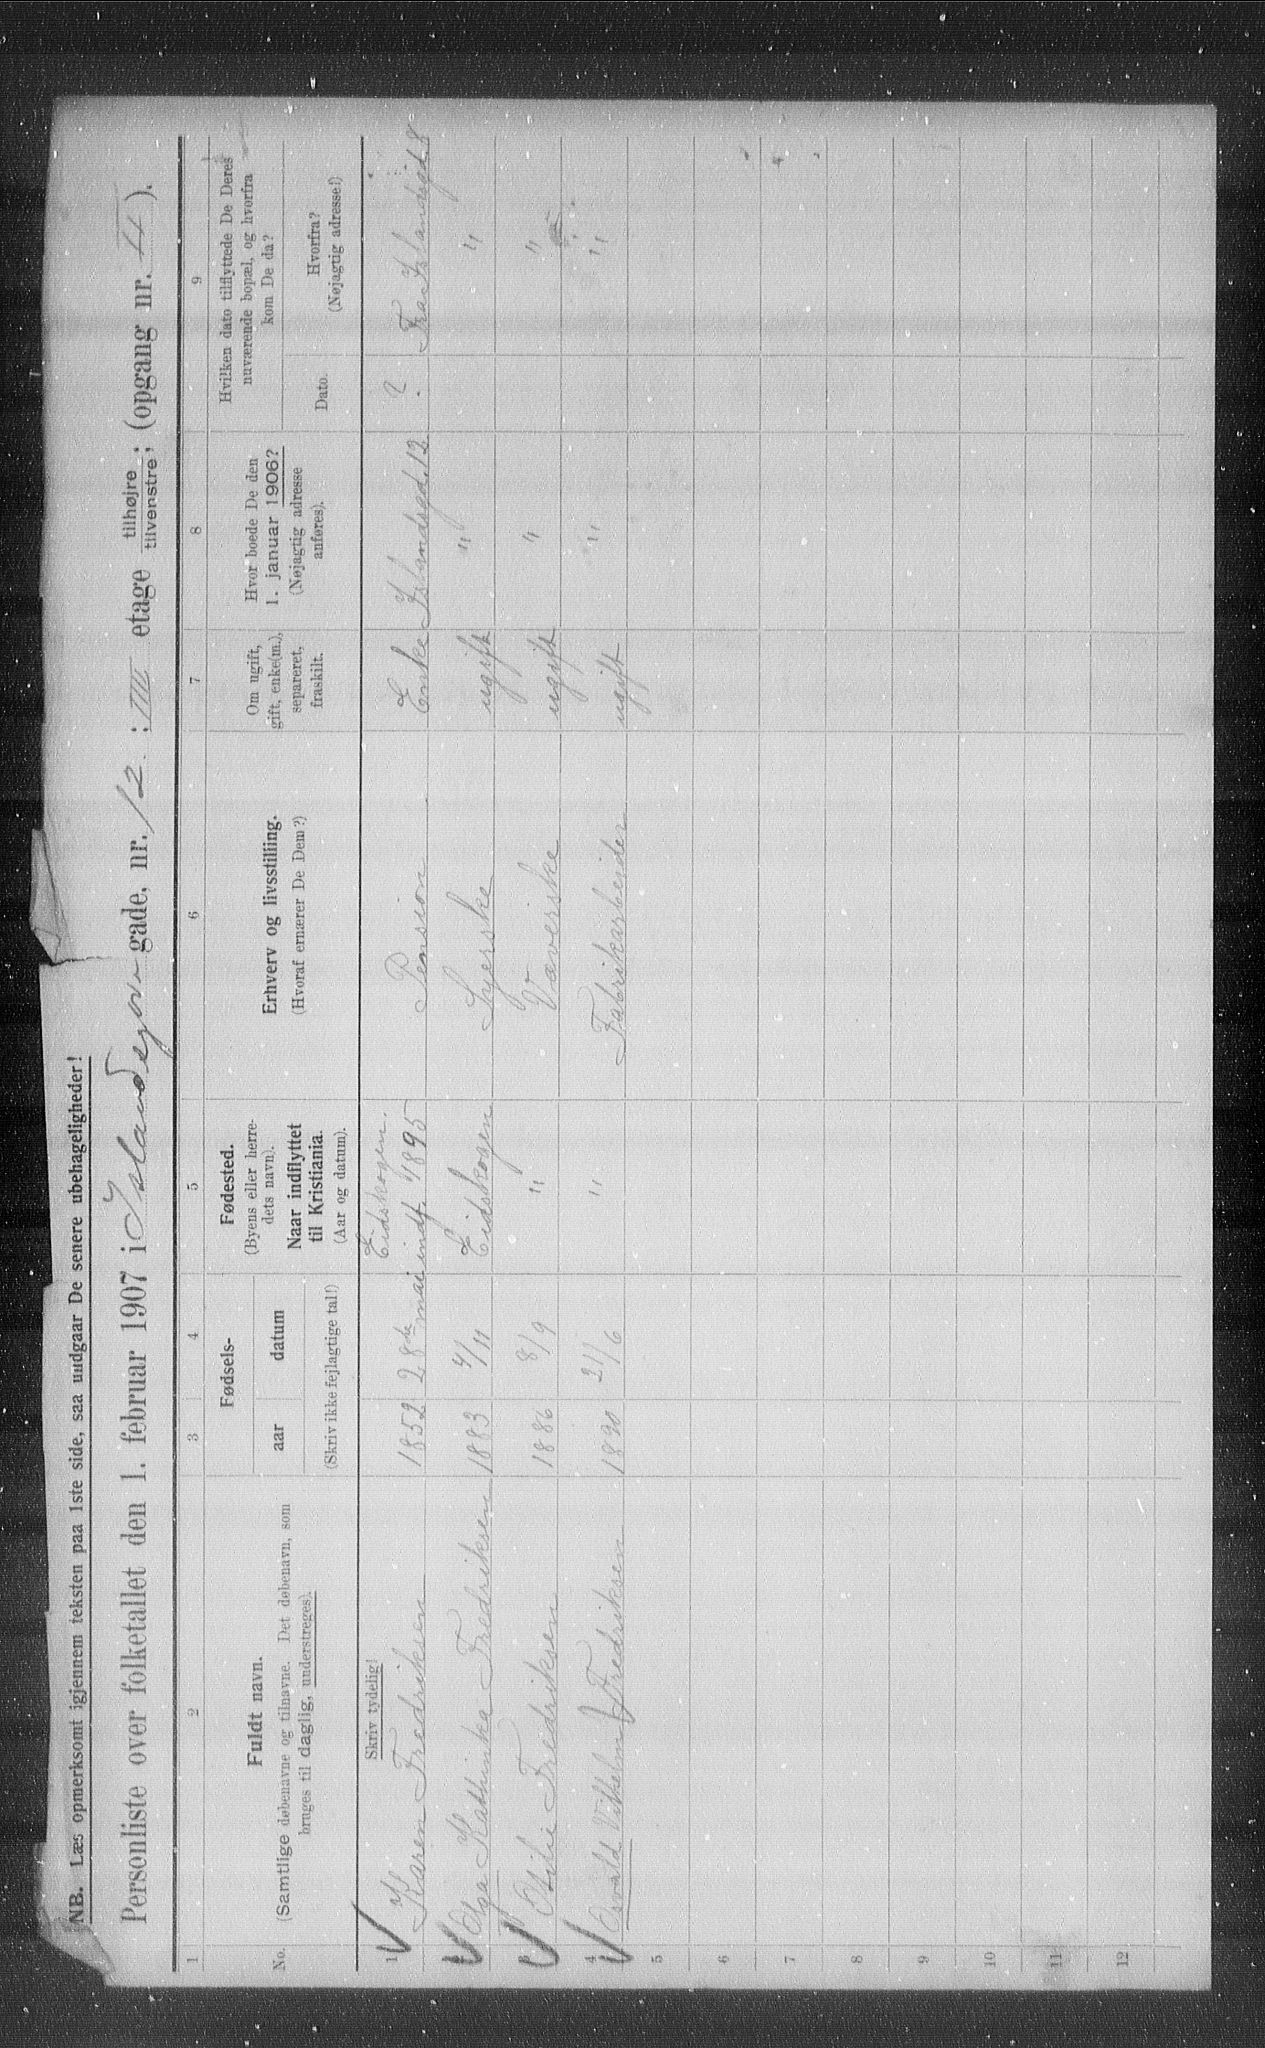 NB. Læs opmerksomt igjennem teksten paa 1ste side, saa undgaar De senere ubehageligheder!
Personliste over folketallet den 1. februar 1907 i Islandsgade, nr. 12 : III etage tilhøjre tilvenstre; (opgang nr. II ).
1 2 3 4 5 6 7 8 9
No.
Fuldt navn.
(Samtlige døbenavne og tilnavne. Det døbenavn, som
bruges til daglig, understreges).
Fødsels-
aar datum
(Skriv ikke fejlagtige tal!)
Fødested.
(Byens eller herre-
dets navn).
Naar indflyttet
til Kristiania.
(Aar og datum).
Erhverv og livsstilling.
(Hvoraf ernærer De Dem?)
Om ugift,
gift, enke(m.),
separeret,
fraskilt.
Hvor boede De den
1. januar 1906?
(Nøjagtig adresse
anføres).
Hvilken dato tilflyttede De Deres
nuværende bopæl, og hvorfra
kom De da?
Dato.
Hvorfra?
(Nøjagtig adresse!)
Skriv tydelig!
1 Karen Fredriksen 1852 28de mai Eidskogen. indf. 1895 Pension Enke Islandsgd. 12 ? Fra Islandsgd. 8
2 Olga Kathinka Fredriksen 1883 4/11 Eidskogen Syerske ugift " "
3 Otilie Fredriksen 1886 8/9 " Væverske ugift " "
4 Osvald Vilhelm Fredriksen 1890 21/6 " Fabrikarbeider ugift " "
5
6
7
8
9
10
11
12